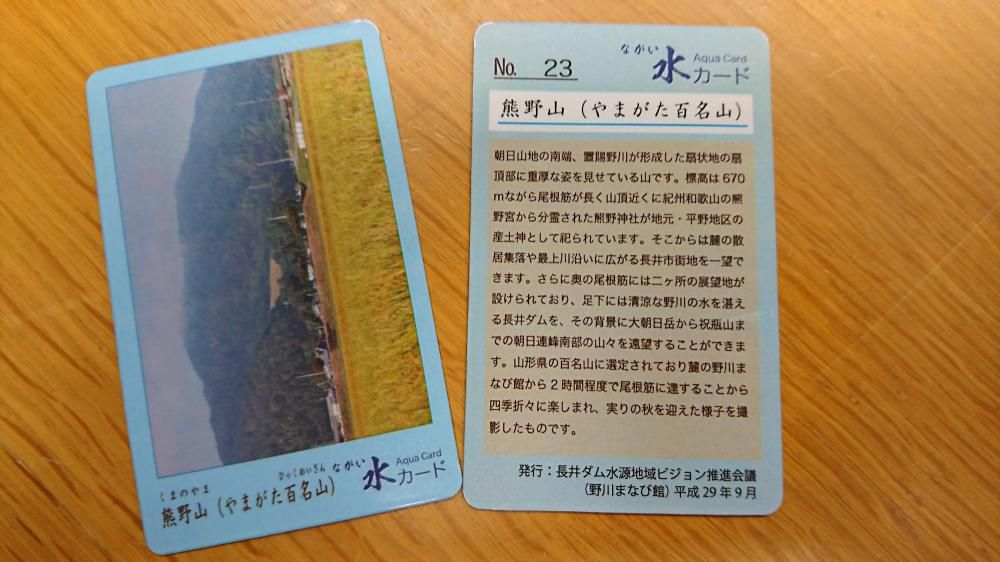 くまのやま
ひゃくめいざん
熊野山（やまがた百名山）
ながい
水カード
Aqua Card
No. 23
ながい
水カード
Aqua Card
熊野山（やまがた百名山）
朝日山地の南端、置賜野川が形成した扇状地の扇
頂部に重厚な姿を見せている山です。標高は670
mながら尾根筋が長く山頂近くに紀州和歌山の熊
野宮から分霊された熊野神社が地元・平野地区の
産土神として祀られています。そこからは麓の散
居集落や最上川沿いに広がる長井市街地を一望で
きます。さらに奥の尾根筋には二ヶ所の展望地が
設けられており、足下には清涼な野川の水を湛え
る長井ダムを、その背景に大朝日岳から祝瓶山ま
での朝日連峰南部の山々を遠望することができま
す。山形県の百名山に選定されており麓の野川ま
なび館から2時間程度で尾根筋に達することから
四季折々に楽しまれ、実りの秋を迎えた様子を撮
影したものです。
発行：長井ダム水源地域ビジョン推進会議
（野川まなび館）平成29年9月